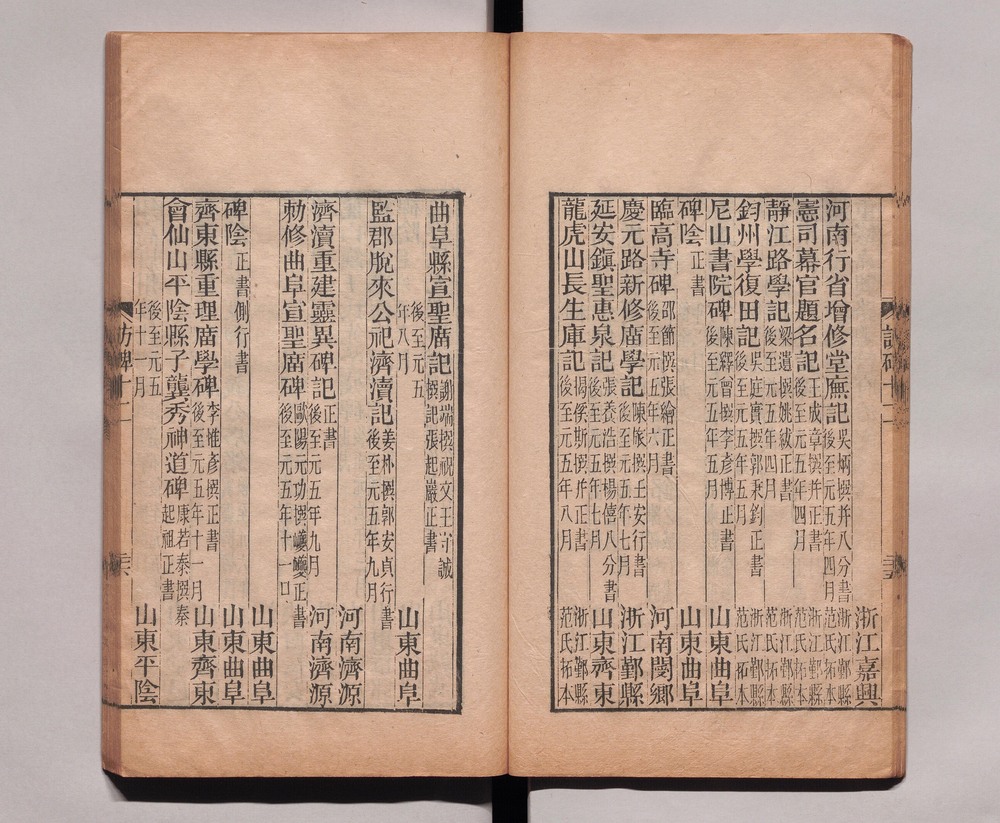 浙江嘉興
河南行省增修堂廡記 吳炳撰并八分書 後至元五年四月 浙江鄞縣 范氏拓本
憲司幕官題名記 王成章撰并正書 後至元五年四月 浙江鄞縣 范氏拓本
靜江路學記 梁遺撰姚紱正書 後至元五年四月 浙江鄞縣 范氏拓本
鈞州學復田記 吳庭實撰郭秉鈞正書 後至元五年五月 浙江鄞縣 范氏拓本
尼山書院碑 陳繹曾撰李彥博正書 後至元五年五月 山東曲阜
碑陰 正書 山東曲阜
臨高寺碑 邵節撰張繪正書 後至元五年六月 河南閿鄉
慶元路新修廟學記 陳旅撰王安行書 後至元五年七月 浙江鄞縣
延安鎮聖惠泉記 張養浩撰楊僖八分書 後至元五年七月 山東齊東
龍虎山長生庫記 揭傒斯撰并正書 後至元五年八月 浙江鄞縣 范氏拓本
曲阜縣宣聖廟記 謝端撰祝文王守誠撰記張起巖正書
後至元五年八月 山東曲阜
監郡脫來公祀濟瀆記 姜朴撰郭安貞行書 後至元五年九月
河南濟源
濟瀆重建靈異碑記 正書 後至元五年九月 河南濟源
勅修曲阜宣聖廟碑 歐陽元功撰巎巎正書 後至元五年十一口
山東曲阜
碑陰 正書側行書 山東曲阜
齊東縣重理廟學碑 李惟彥撰正書 後至元五年十一月 山東齊東
會仙山平陰縣子龔秀神道碑 康若泰撰秦起祖正書
後至元五年十一月 山東平陰
訪碑十一